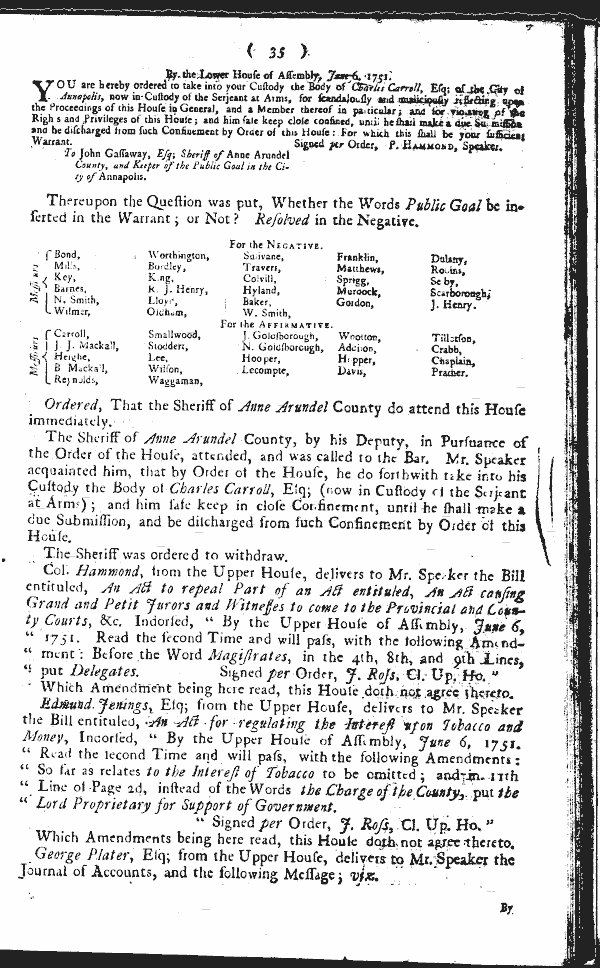 ( 35 )
By the Lower House of Assembly, June 6, 1751.
YOU are hereby ordered to take into your Custody the Body of Charles Carroll, Esq; of the City of
Annapolis, now in Custody of the Serjeant at Arms, for scandalously and maliciously reflecting upon
the Proceedings of this House in General, and a Member thereof in particular; and for violating of the
Rights and Privileges of this House; and him safe keep close confined, until he shall make a due Submission
and be discharged from such Confinement by Order of this House: For which this shall be your sufficient
Warrant. Signed per Order, P. HAMMOND, Speaker.
To John Gassaway, Esq; Sheriff of Anne Arundel
County, and Keeper of the Public Goal in the Ci-
ty of Annapolis.
Thereupon the Question was put, Whether the Words Public Goal be in-
serted in the Warrant; or Not? Resolved in the Negative.
For the NEGATIVE.
Messieurs
Bond, Worthington, Sulivane, Franklin, Dulany,
Mills, Bordley, Travers, Matthews, Robins,
Key, King, Colvill, Sprigg, Selby,
Barnes, R. J. Henry, Hyland, Murdock, Scarborough,
N. Smith, Lloyd, Baker, Gordon, J. Henry.
Wilmer, Oldham, W. Smith,
For the AFFIRMATIVE.
Messieurs
Carroll, Smallwood, J. Goldsborough, Wootton, Tillotson,
J. J. Mackall, Stoddert, N. Goldsborough, Addison, Crabb,
Heighe, Lee, Hooper, Hopper, Chaplain,
B Mackall, Wilson, Lecompte, Davis, Prather.
Reynolds, Waggaman,
Ordered, That the Sheriff of Anne Arundel County do attend this House
immediately.
The Sheriff of Anne Arundel County, by his Deputy, in Pursuance of
the Order of the House, attended, and was called to the Bar. Mr. Speaker
acquainted him, that by Order of the House, he do forthwith take into his
Custody the Body of Charles Carroll, Esq; (now in Custody of the Serjeant
at Arms); and him safe keep in close Confinement, until he shall make a
due Submission, and be discharged from such Confinement by Order of this
House.
The Sheriff was ordered to withdraw.
Col. Hammond, from the Upper House, delivers to Mr. Speaker the Bill
entituled, An Act to repeal Part of an Act entituled, An Act causing
Grand and Petit Jurors and Witnesses to come to the Provincial and Coun-
ty Courts, &c. Indorsed, " By the Upper House of Assembly, June 6,
" 1751. Read the second Time and will pass, with the following Amend-
" ment: Before the Word Magistrates, in the 4th, 8th, and 9th Lines,
" put Delegates. Signed per Order, J. Ross, Cl. Up. Ho. "
Which Amendment being here read, this House doth not agree thereto.
Edmund Jenings, Esq; from the Upper House, delivers to Mr. Speaker
the Bill entituled, An Act for regulating the Interest upon Tobacco and
Money, Indorsed, " By the Upper House of Assembly, June 6, 1751.
" Read the second Time and will pass, with the following Amendments:
" So far as relates to the Interest of Tobacco to be omitted; and in 11th
" Line of Page 2d, instead of the Words the Charge of the County, put the
" Lord Proprietary for Support of Government.
" Signed per Order, J. Ross, Cl. Up. Ho. "
Which Amendments being here read, this House doth not agree thereto.
George Plater, Esq; from the Upper House, delivers to Mr. Speaker the
Journal of Accounts, and the following Message; viz.
By